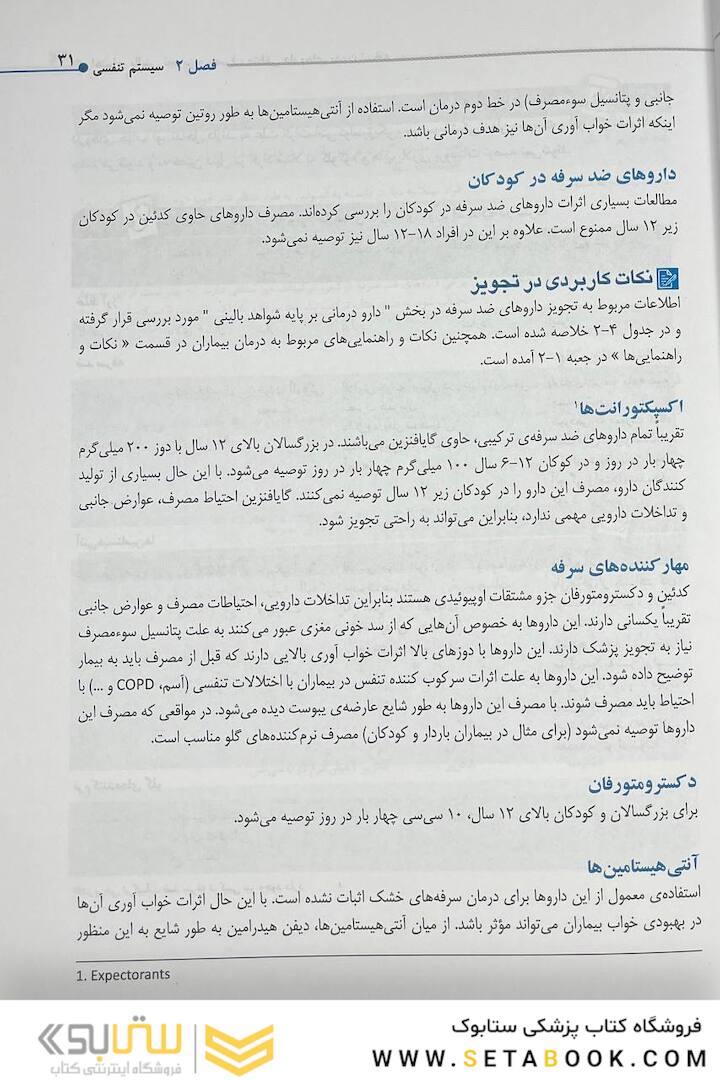 فصل ۲ سیستم تنفسی ۳۱
جانبی و پتانسیل سوء‌مصرف) در خط دوم درمان است. استفاده از آنتی‌هیستامین‌ها به طور روتین توصیه نمی‌شود مگر
اینکه اثرات خواب آوری آن‌ها نیز هدف درمانی باشد.
داروهای ضد سرفه در کودکان
مطالعات بسیاری اثرات داروهای ضد سرفه در کودکان را بررسی کرده‌اند. مصرف داروهای حاوی کدئین در کودکان
زیر ۱۲ سال ممنوع است. علاوه بر این در افراد ۱۸-۱۲ سال نیز توصیه نمی‌شود.
نکات کاربردی در تجویز
اطلاعات مربوط به تجویز داروهای ضد سرفه در بخش " دارو درمانی بر پایه شواهد بالینی " مورد بررسی قرار گرفته
و در جدول ۴-۲ خلاصه شده است. همچنین نکات و راهنمایی‌های مربوط به درمان بیماران در قسمت « نکات و
راهنمایی‌ها » در جعبه ۱-۲ آمده است.
اکسپکتورانت‌ها۱
تقریباً تمام داروهای ضد سرفه‌ی ترکیبی، حاوی گایافنزین می‌باشند. در بزرگسالان بالای ۱۲ سال با دوز ۲۰۰ میلی‌گرم
چهار بار در روز و در کوکان ۱۲-۶ سال ۱۰۰ میلی‌گرم چهار بار در روز توصیه می‌شود. با این حال بسیاری از تولید
کنندگان دارو، مصرف این دارو را در کودکان زیر ۱۲ سال توصیه نمی‌کنند. گایافنزین احتیاط مصرف، عوارض جانبی
و تداخلات دارویی مهمی ندارد، بنابراین می‌تواند به راحتی تجویز شود.
مهارکننده‌های سرفه
کدئین و دکسترومتورفان جزو مشتقات اوپیوئیدی هستند بنابراین تداخلات دارویی، احتیاطات مصرف و عوارض جانبی
تقریباً یکسانی دارند. این داروها به خصوص آن‌هایی که از سد خونی مغزی عبور می‌کنند به علت پتانسیل سوء‌مصرف
نیاز به تجویز پزشک دارند. این داروها با دوزهای بالا اثرات خواب آوری بالایی دارند که قبل از مصرف باید به بیمار
توضیح داده شود. این داروها به علت اثرات سرکوب کننده تنفس در بیماران با اختلالات تنفسی (آسم، COPD و ...) با
احتیاط باید مصرف شوند. با مصرف این داروها به طور شایع عارضه‌ی یبوست دیده می‌شود. در مواقعی که مصرف این
داروها توصیه نمی‌شود (برای مثال در بیماران باردار و کودکان) مصرف نرم‌کننده‌های گلو مناسب است.
دکسترومتورفان
برای بزرگسالان و کودکان بالای ۱۲ سال، ۱۰ سی‌سی چهار بار در روز توصیه می‌شود.
آنتی‌هیستامین‌ها
استفاده‌ی معمول از این داروها برای درمان سرفه‌های خشک اثبات نشده است. با این حال اثرات خواب آوری آن‌ها
در بهبودی خواب بیماران می‌تواند مؤثر باشد. از میان آنتی‌هیستامین‌ها، دیفن هیدرامین به طور شایع به این منظور
1. Expectorants
فروشگاه کتاب پزشکی ستابوک
WWW.SETABOOK.COM
ستابوک
فروشگاه اینترنتی کتاب